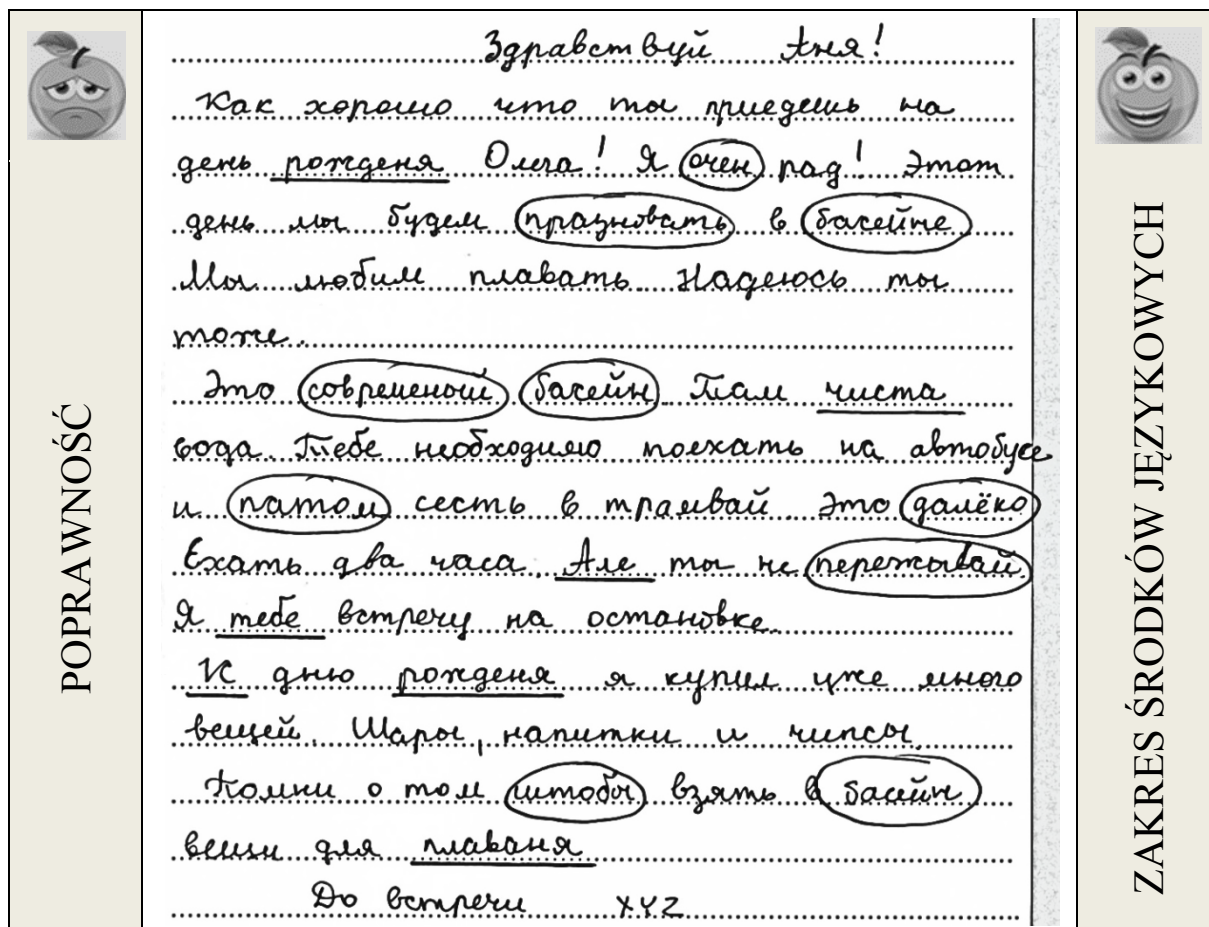 POPRAWNOŚĆ
Здравствуй Аня!
Как хорошо что ты приедешь на
день рожденя Олега! Я очен рад! Этот
день мы будем празновать в басейне
Мы любим плавать Надеюсь ты
тоже.
Это современой басейн Там чиста
вода Тебе необходимо поехать на автобусе
и патом сесть в трамвай Это далёко
Ехать два часа. Але ты не пережывай
Я тебе встречу на остановке
К дню рожденя я купил уже много
вещей. Шары, напитки и чипсы
Помни о том штобы взять в басейн
вещи для плаваня
До встречи XYZ
ZAKRES ŚRODKÓW JĘZYKOWYCH